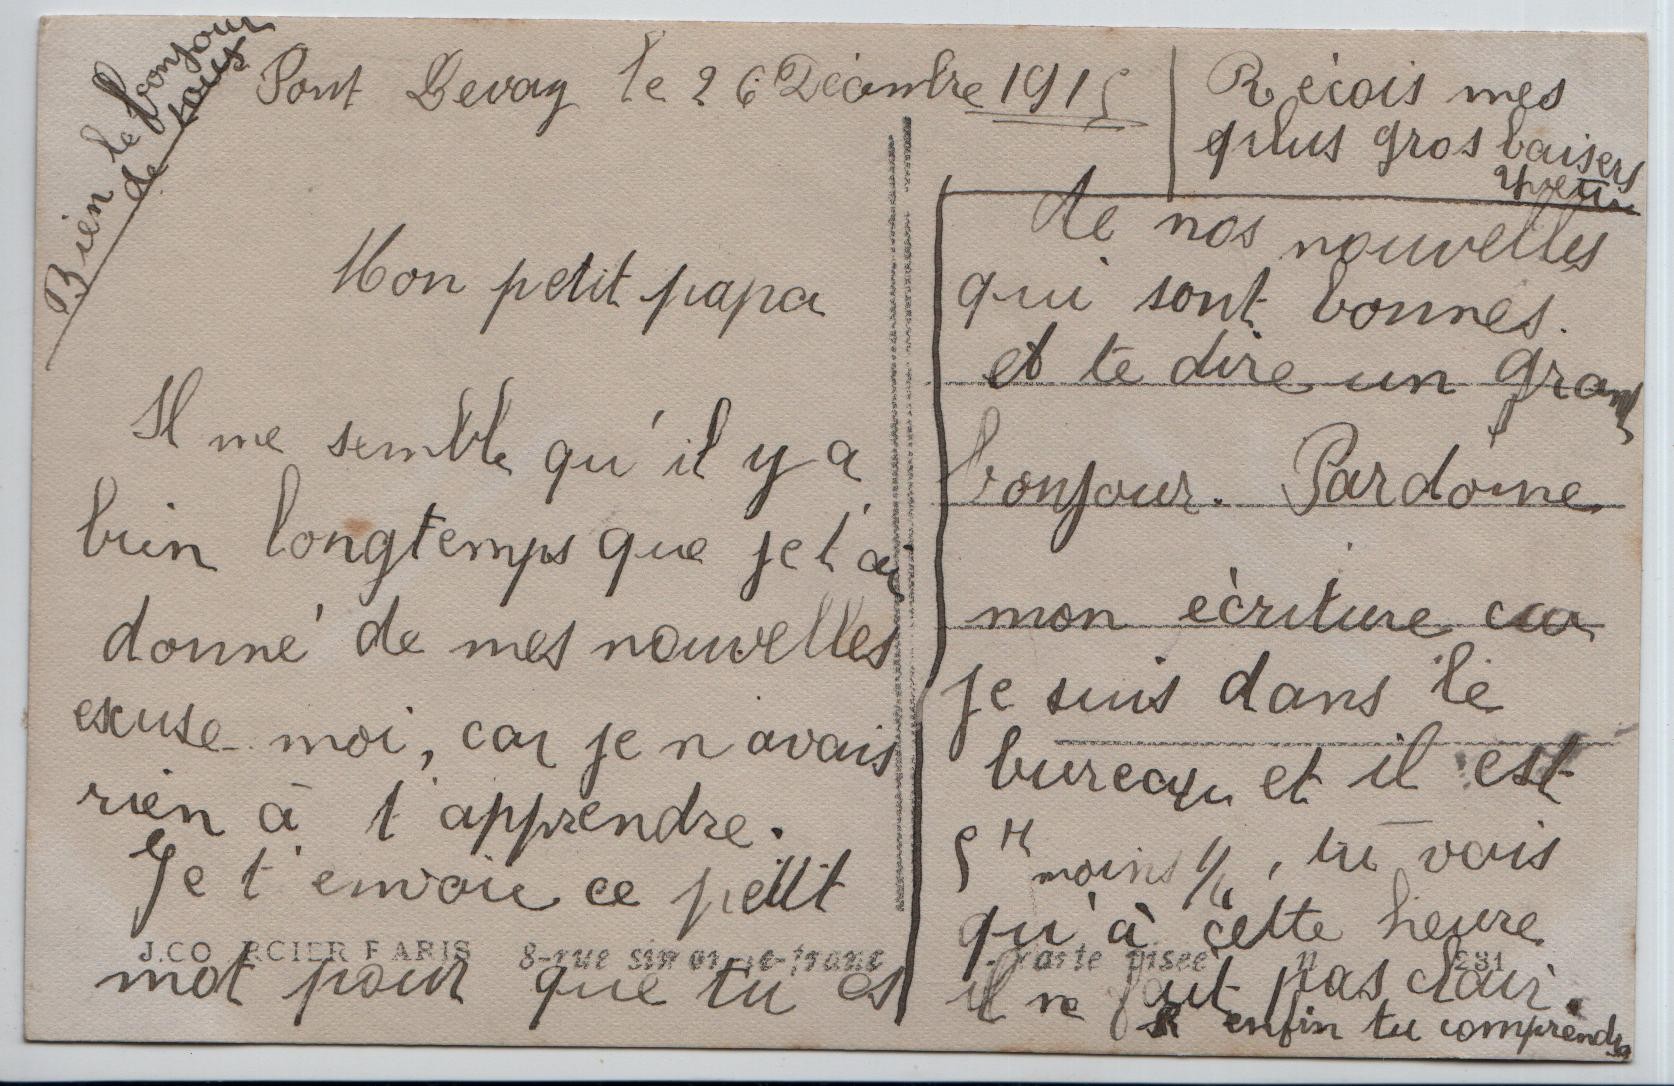 Bien le bonjour
de tous
Pont Levoy le 26 Décembre 1915
Mon petit papa
Il me semble qu'il y a
bien longtemps que je t'ai
donné de mes nouvelles
excuse moi, car je n'avais
rien à t'apprendre.
Je t'envoie ce petit
mot pour que tu es
de nos nouvelles
qui sont bonnes.
et te dire un grand
bonjour. Pardonne
mon écriture car
je suis dans le
bureau et il est
5 H moins 1/4, tu vois
qu'à cette heure
il ne fait pas clair.
enfin tu comprendra
Recois mes
plus gros baisers
J.CO RCIER PARIS 8-rue simon-le-franc
231